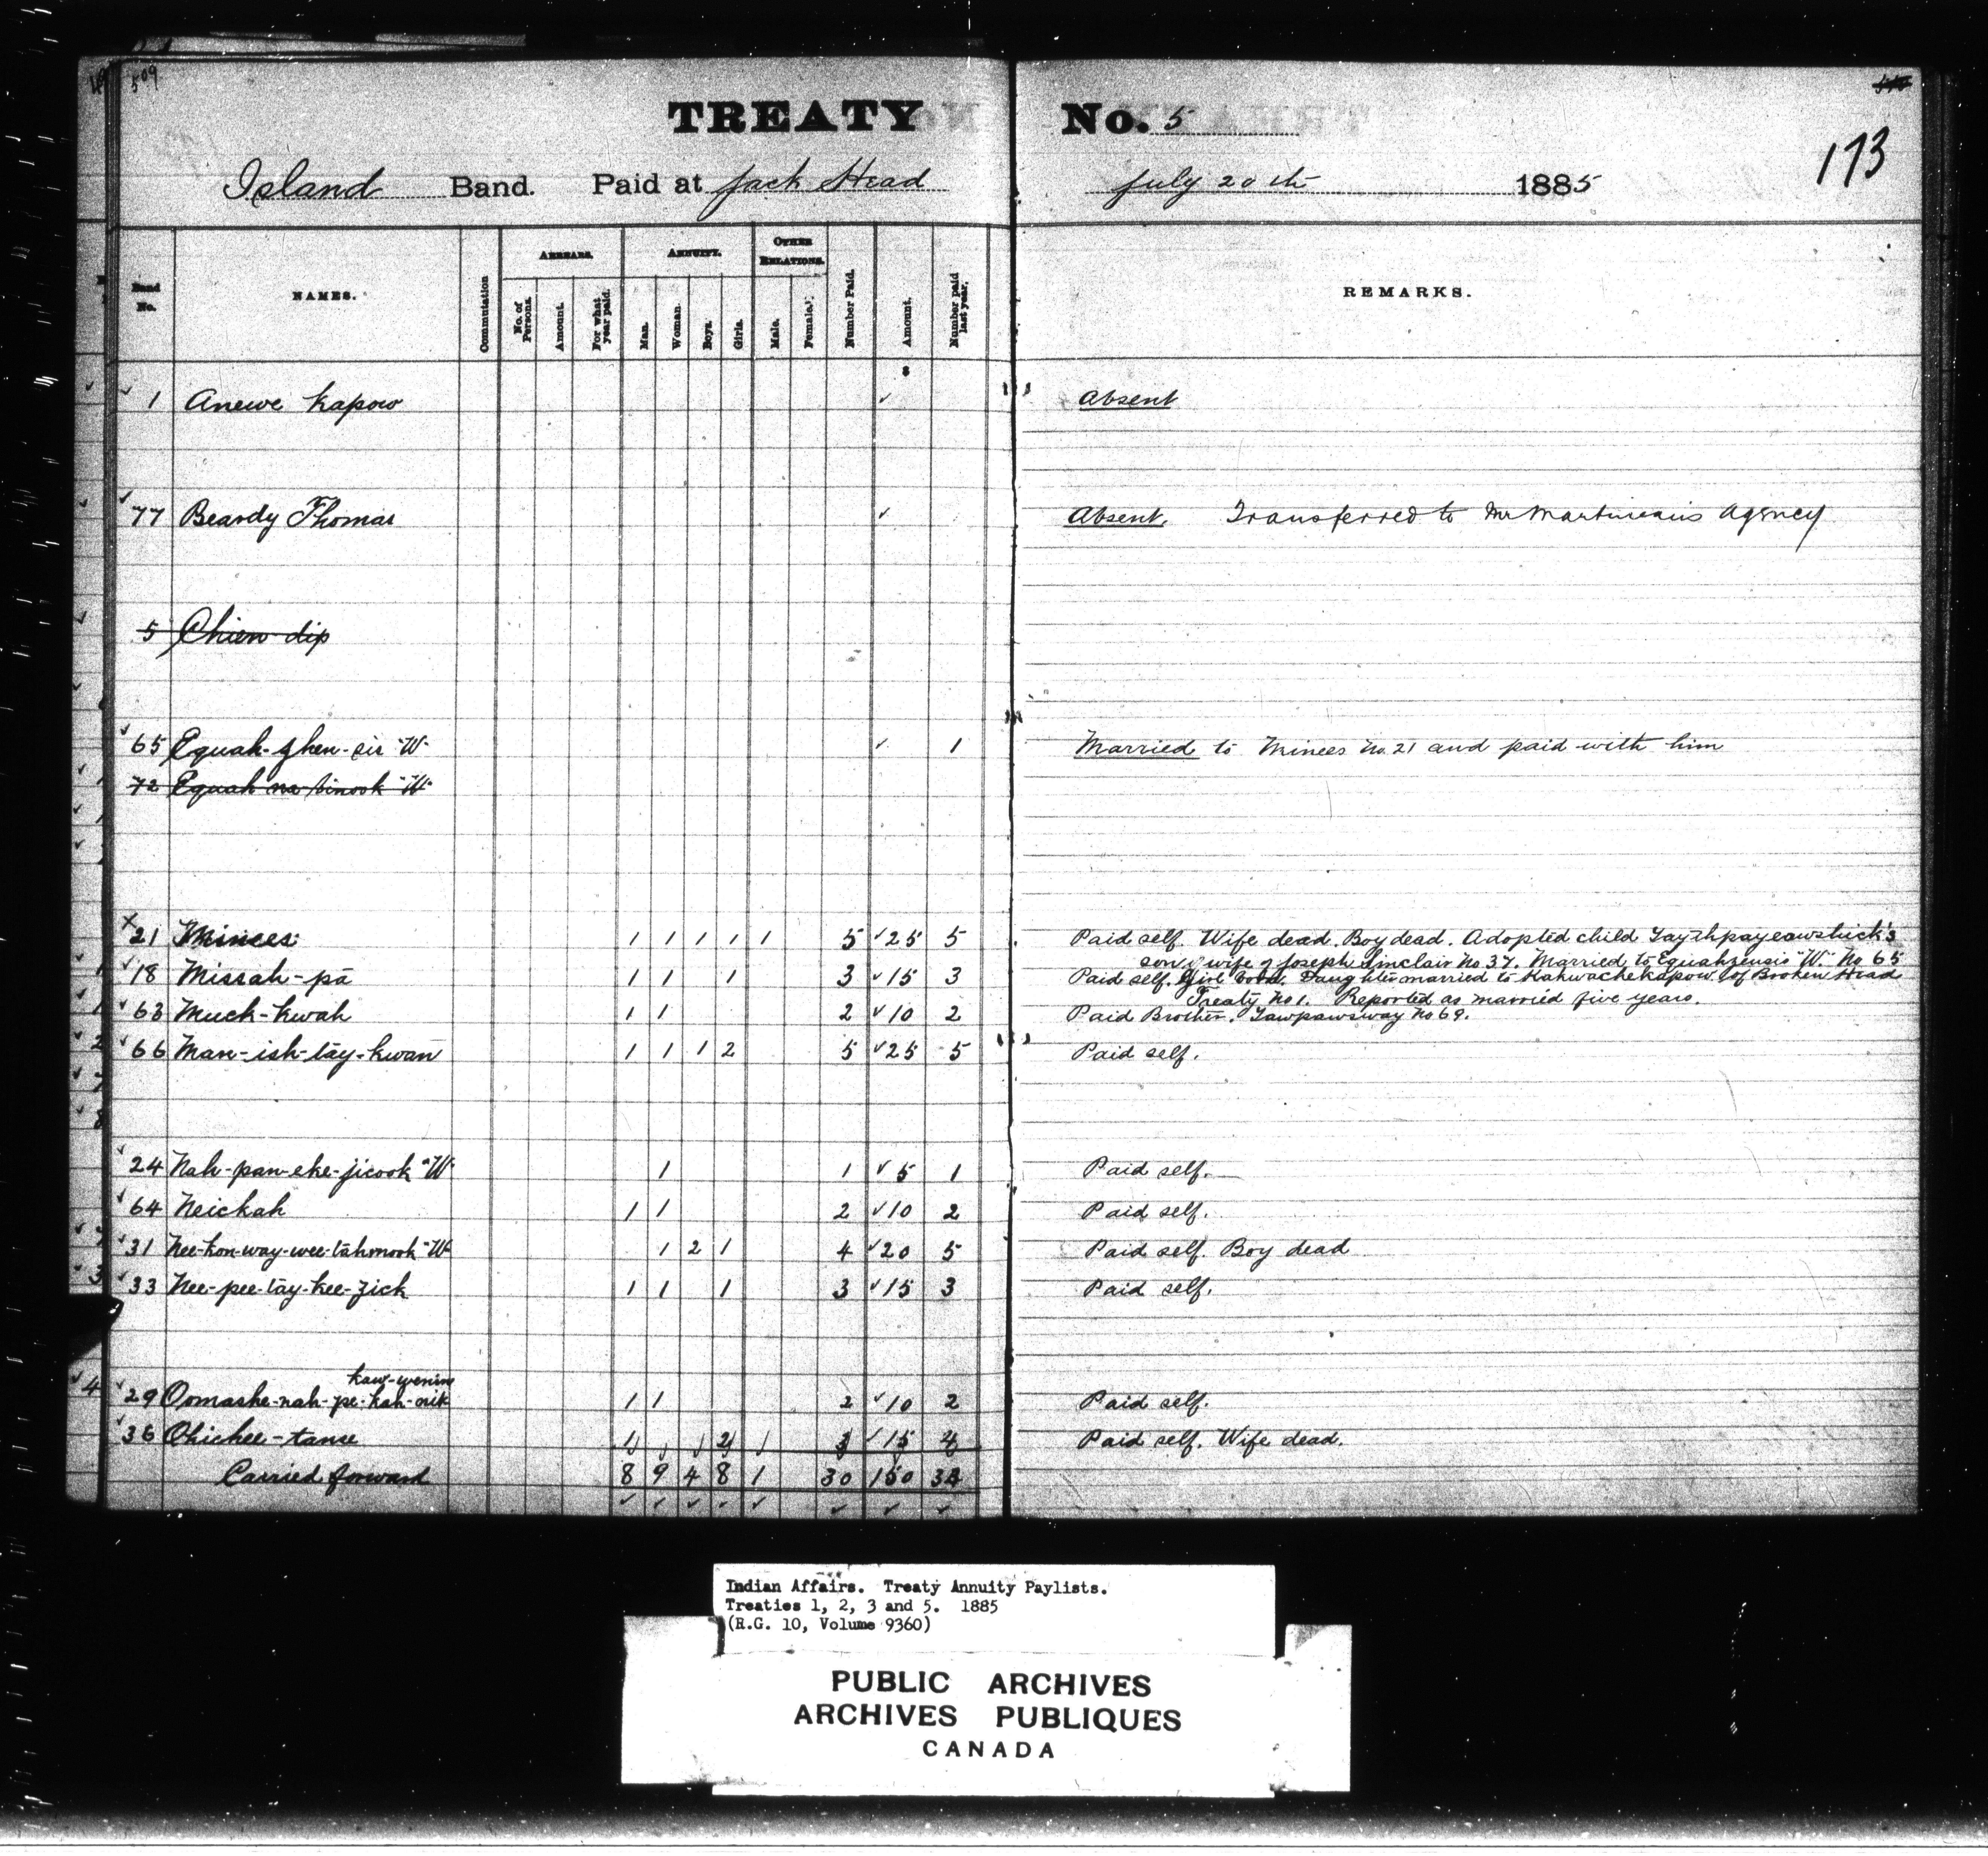 509
TREATY No. 5
173
Island Band. Paid at Jack Head July 20th 1885
Band No. NAMES. Commutation ARREARS. No. of Persons. Amount. For what year paid. ANNUITY. Man. Woman Boys. Girls. OTHER RELATIONS. Male. Female. Number Paid. Amount. Number paid last year. REMARKS.
$
1 Anewe Kapow Absent
77 Beardy Thomas Absent. Transferred to Mr Martineau's Agency
5 Chien dip
65 Equah-zhen-sis "W" 1 Married to Minees No. 21 and paid with him
72 Equah na binook "W"
21 Minees 1 1 1 1 1 5 25 5 Paid self. Wife dead. Boy dead. Adopted child
son of wife of Joseph Sinclair No 37. Married to Equahzensis "W." No 65
18 Missah-pa 1 1 1 3 15 3 Paid self. Girl Daughter married to Kahwachekapow of Broken Head
Treaty No 1. Reported as married five years.
63 Muck-kwah 1 1 2 10 2 Paid Brother. Tawpawsway No 69.
66 Man-ish-tay-kwan 1 1 1 2 5 25 5 Paid self.
24 Nah-pan-eke-jicook "W" 1 1 5 1 Paid self.
64 Neickah 1 1 2 10 2 Paid self.
31 Nee-kon-way-wee-tahmook "W" 1 2 1 4 20 5 Paid self. Boy dead
33 Nee-pee-tay-kee-zick 1 1 1 3 15 3 Paid self.
kaw-wenin
29 Oomashe-nah-pe-kah-nik 1 1 2 10 2 Paid self.
36 Ohichee-tanse 1 2 3 15 4 Paid self. Wife dead.
Carried forward 8 9 4 8 1 30 150
Indian Affairs. Treaty Annuity Paylists.
Treaties 1, 2, 3 and 5. 1885
(R.G. 10, Volume 9360)
PUBLIC ARCHIVES
ARCHIVES PUBLIQUES
CANADA